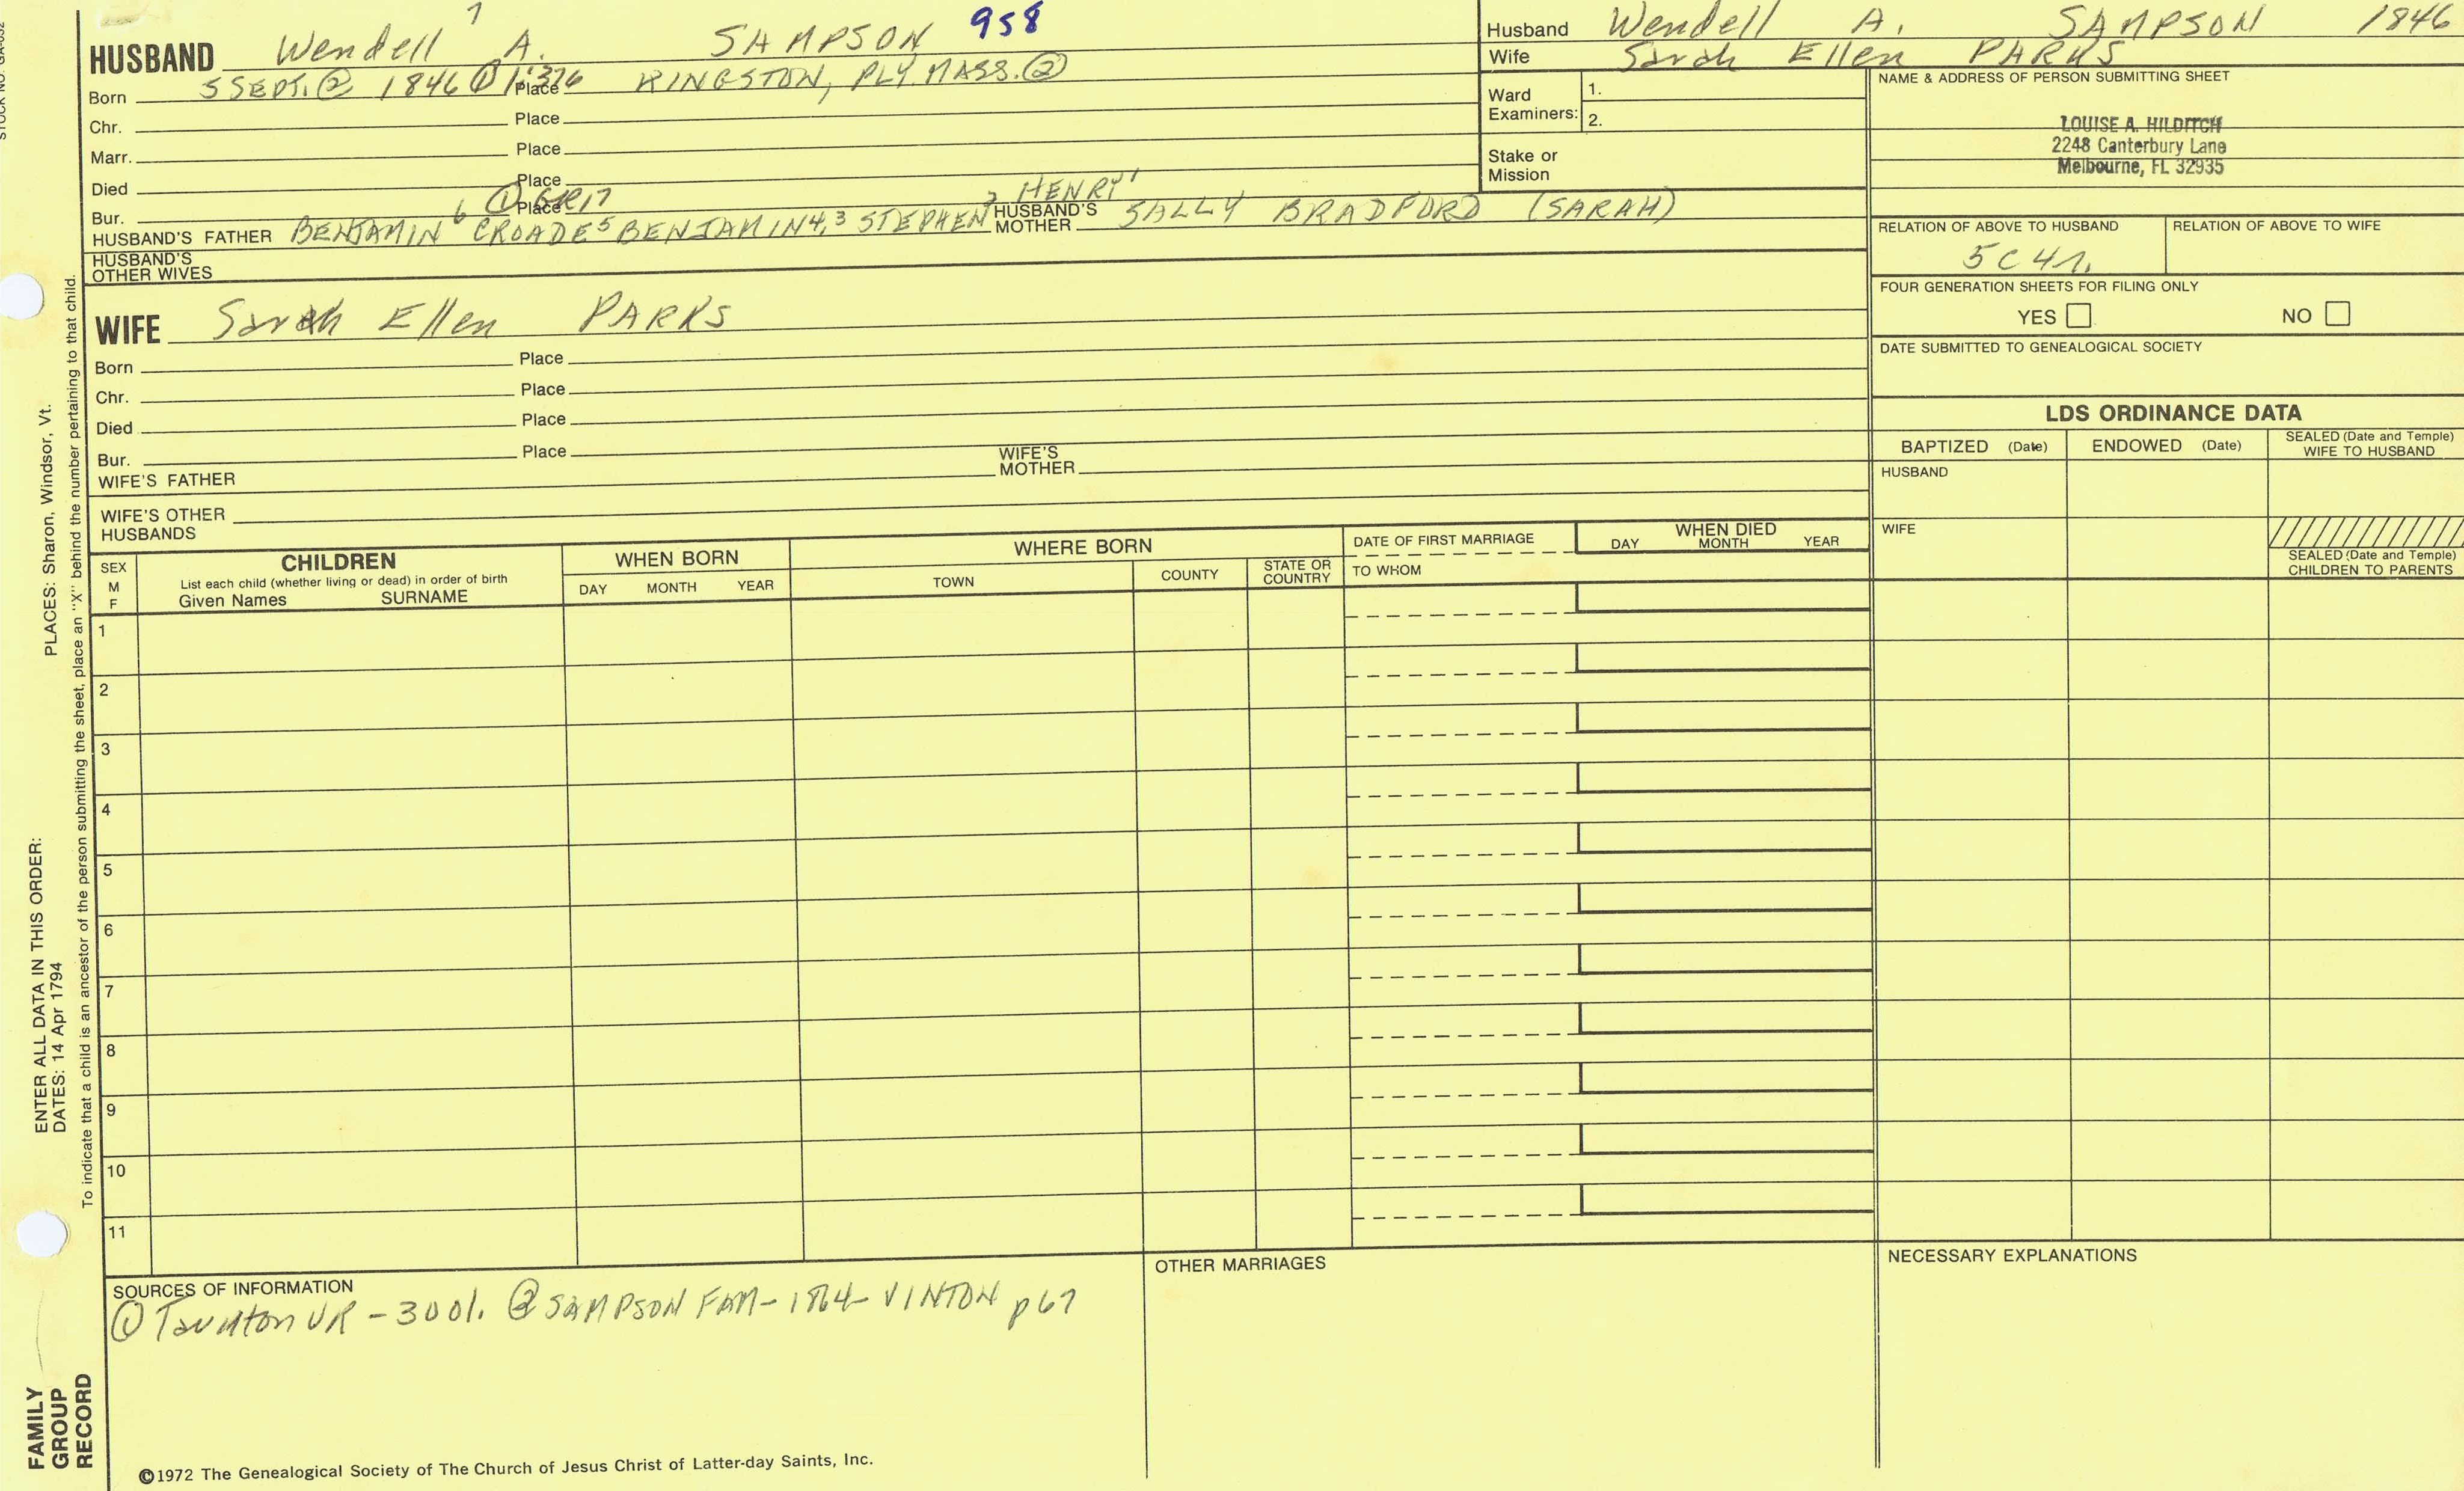 STOCK NO. GA-032
HUSBAND Wendell 7 A. SAMPSON 958
Born 5 SEPT. ② 1846 ① 1:376 Place KINGSTON, PLY. MASS. ②
Chr. Place
Marr. Place
Died Place
Bur. Place
① GR17
HUSBAND'S FATHER BENJAMIN 6 CROADE 5 BENJAMIN 4,3 STEPHEN 2 HENRY 1 HUSBAND'S MOTHER SALLY BRADFORD (SARAH)
HUSBAND'S OTHER WIVES
WIFE Sarah Ellen PARKS
Born Place
Chr. Place
Died Place
Bur. Place
WIFE'S FATHER WIFE'S MOTHER
WIFE'S OTHER HUSBANDS
Husband Wendell A. SAMPSON 1846
Wife Sarah Ellen PARKS
Ward Examiners: 1.
2.
Stake or Mission
NAME & ADDRESS OF PERSON SUBMITTING SHEET
LOUISE A. HILDITCH
2248 Canterbury Lane
Melbourne, FL 32935
RELATION OF ABOVE TO HUSBAND RELATION OF ABOVE TO WIFE
5C 4r.
FOUR GENERATION SHEETS FOR FILING ONLY
YES NO
DATE SUBMITTED TO GENEALOGICAL SOCIETY
LDS ORDINANCE DATA
BAPTIZED (Date) ENDOWED (Date) SEALED (Date and Temple) WIFE TO HUSBAND
HUSBAND
WIFE
SEALED (Date and Temple) CHILDREN TO PARENTS
SEX M F
CHILDREN
List each child (whether living or dead) in order of birth
Given Names SURNAME
WHEN BORN
DAY MONTH YEAR
WHERE BORN
TOWN COUNTY STATE OR COUNTRY
DATE OF FIRST MARRIAGE
TO WHOM
WHEN DIED
DAY MONTH YEAR
1
2
3
4
5
6
7
8
9
10
11
SOURCES OF INFORMATION
① Taunton VR - 3001. ② SAMPSON FAM - 1864 - VINTON p 67
OTHER MARRIAGES
NECESSARY EXPLANATIONS
©1972 The Genealogical Society of The Church of Jesus Christ of Latter-day Saints, Inc.
FAMILY GROUP RECORD
ENTER ALL DATA IN THIS ORDER:
DATES: 14 Apr 1794
PLACES: Sharon, Windsor, Vt.
To indicate that a child is an ancestor of the person submitting the sheet, place an "X" behind the number pertaining to that child.